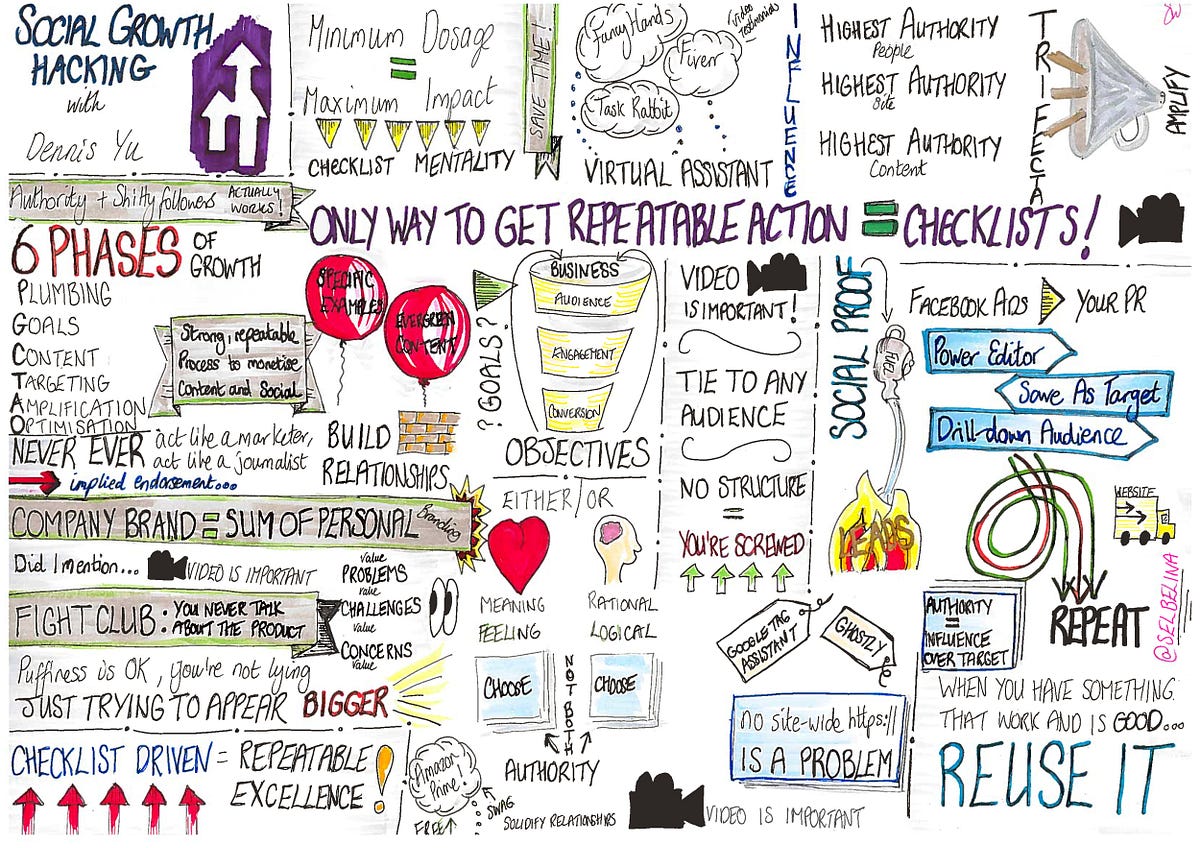 SOCIAL GROWTH
HACKING
with
Dennis Yu
Minimum Dosage
=
Maximum Impact
CHECKLIST MENTALITY
SAVE TIME!
FancyHands
Fiverr
Task Rabbit
Video
Testimonials
VIRTUAL ASSISTANT
INFLUENCE
HIGHEST AUTHORITY
People
HIGHEST AUTHORITY
Site
HIGHEST AUTHORITY
Content
TRIFECTA
AMPLIFY
Authority + Shitty followers ACTUALLY
WORKS!
ONLY WAY TO GET REPEATABLE ACTION = CHECKLISTS!
6 PHASES OF
GROWTH
PLUMBING
GOALS
CONTENT
TARGETING
AMPLIFICATION
OPTIMISATION
Strong, repeatable
Process to monetise
Content and Social
SPECIFIC
EXAMPLES
EVERGREEN
CONTENT
NEVER EVER act like a marketer,
act like a journalist
implied endorsement...
BUILD
RELATIONSHIPS
? GOALS?
BUSINESS
AUDIENCE
ENGAGEMENT
CONVERSION
OBJECTIVES
VIDEO
IS IMPORTANT!
TIE TO ANY
AUDIENCE
NO STRUCTURE
=
YOU'RE SCREWED
SOCIAL PROOF
FUEL
LEADS
FACEBOOK ADS YOUR PR
Power Editor
Save As Target
Drill-down Audience
WEBSITE
REPEAT
@SELBELINA
COMPANY BRAND = SUM OF PERSONAL Branding
Did I mention... VIDEO IS IMPORTANT
FIGHT CLUB: YOU NEVER TALK
ABOUT THE PRODUCT
value
PROBLEMS
value
CHALLENGES
value
CONCERNS
value
Puffiness is OK, you're not lying
JUST TRYING TO APPEAR BIGGER
CHECKLIST DRIVEN = REPEATABLE
EXCELLENCE!
EITHER/OR
MEANING
FEELING
RATIONAL
LOGICAL
CHOOSE
NOT BOTH
CHOOSE
AUTHORITY
Amazon
Prime
FREE
SWAG
SOLIDIFY RELATIONSHIPS
VIDEO IS IMPORTANT
GOOGLE TAG
ASSISTANT
GHOSTLY
no site-wide https://
IS A PROBLEM
AUTHORITY
=
INFLUENCE
OVER TARGET
WHEN YOU HAVE SOMETHING
THAT WORK AND IS GOOD...
REUSE IT